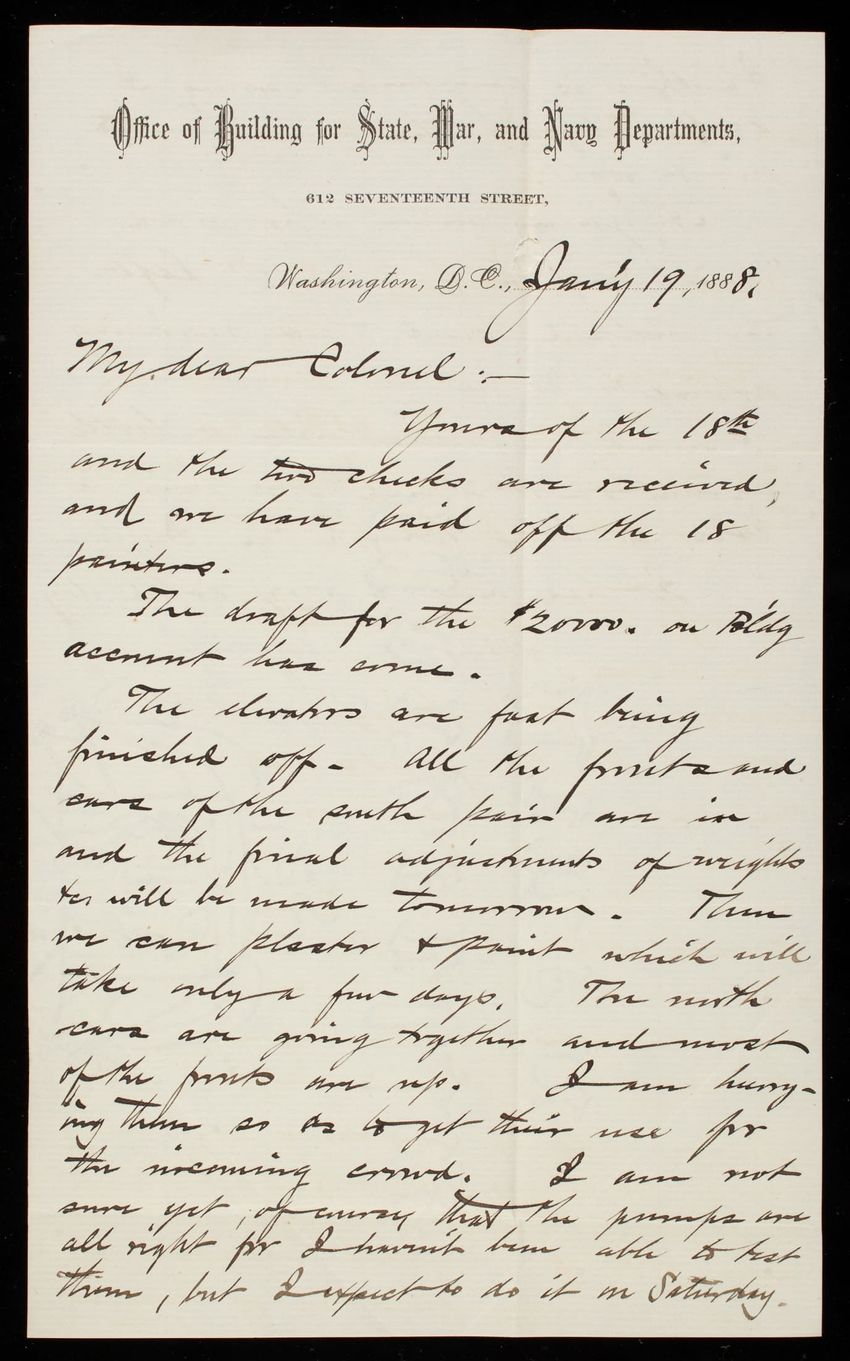 Office of Building for State, War, and Navy Departments,
612 SEVENTEENTH STREET,
Washington, D.C., Jan'y 19, 1888.
My dear Colonel :—
Yours of the 18th
and the two checks are received,
and we have paid off the 18
painters.
The draft for the $20000. on B'ldg
account has come.
The elevators are fast being
finished off. All the fronts and
cars of the south pair are in
and the final adjustments of weights
&c. will be made tomorrow. Then
we can plaster & paint which will
take only a few days. The north
cars are going together and most
of the fronts are up. I am hurry-
ing them so as to get their use for
the incoming crowd. I am not
sure yet, of course, that the pumps are
all right for I haven't been able to test
them, but I expect to do it on Saturday.